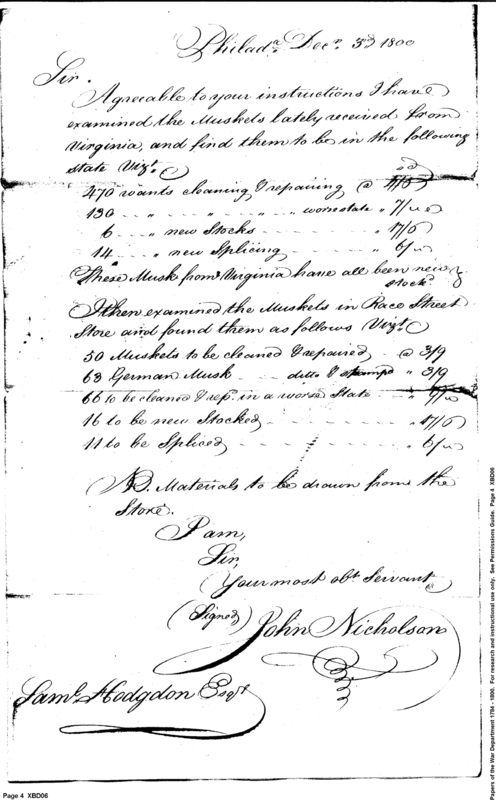 Philada. Decr. 3d 1800
Sir.
Agreeable to your instructions I have
examined the Muskets lately received from
Virginia, and find them to be in the following
state Vizt.
470 wants cleaning & repairing @
130 " " " " worse state " 7/
6 " new Stocks " 17/6
14 " new Splicing " 6/
These Musk from Virginia have all been new
stockd
I then examined the Muskets in Race Street
Store and found them as follows Vizt.
50 Muskets to be cleaned & repaired @ 3/9
63 German Musk ditto & stamped " 3/9
66 to be cleaned & rep. in a worse State "
16 to be new Stocked " 17/6
11 to be Spliced " 6/
NB. Materials to be drawn from the
Store.
I am,
Sir,
Your most obt Servant
(Signed) John Nicholson
Saml. Hodgdon Esqr.
Page 4 XBD06
Papers of the War Department 1784 - 1800. For research and instructional use only. See Permissions Guide. Page 4 XBD06